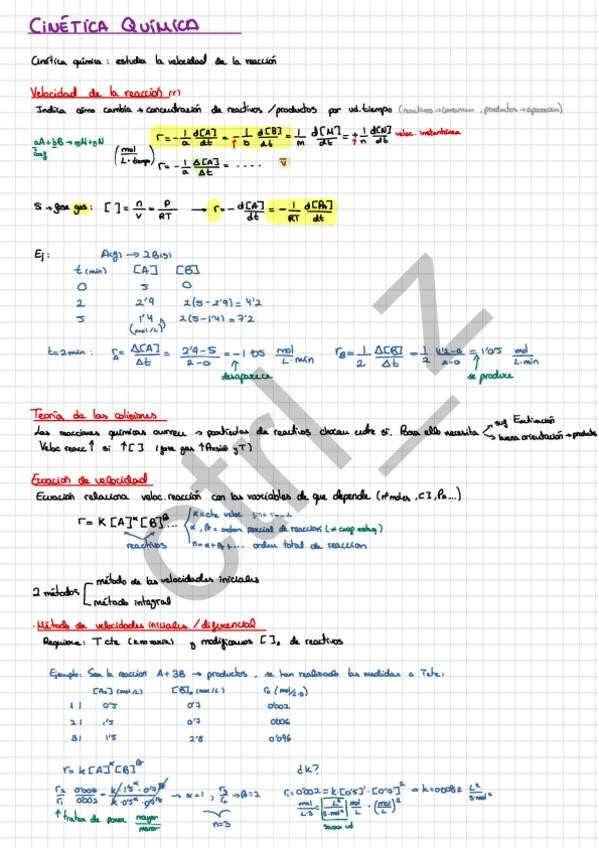 CINÉTICA QUÍMICA
Cinética química: estudia la velocidad de la reacción
Velocidad de la reacción (r)
Indica cómo cambia → concentración de reactivos/productos por ud. tiempo (reactivos → consumen, productos → aparecen)
aA + bB → mM + nN
r = -1/a d[A]/dt = -1/b d[B]/dt = 1/m d[M]/dt = +1/n d[N]/dt veloc. instantánea
(mol/L·tiempo) r = -1/a Δ[A]/Δt = .... v̅
Si → fase gas: [ ] = n/V = P/RT → r = -d[A]/dt = -1/RT d[PA]/dt
Ej: A(g) → 2B(g)
t (min) [A] [B]
0 5 0
2 2'9 2(5-2'9) = 4'2
5 1'4 2(5-1'4) = 7'2
(mol/L)
t = 2 min: rA = Δ[A]/Δt = 2'9-5/2-0 = -1'05 mol/L·min rB = 1/2 Δ[B]/Δt = 1/2 4'2-0/2-0 = 1'05 mol/L·min
desaparece se produce
Teoría de las colisiones
Las reacciones químicas ocurren → partículas de reactivos chocan entre sí. Para ello necesita suf Eactivación
buena orientación → productos
Veloc reacc ↑ si ↑[ ] (fase gas ↑Presión y T)
Ecuación de velocidad
Ecuación relaciona veloc. reacción con las variables de que depende (nºmoles, [ ], Pn...)
r = K [A]^α [B]^β ... K = cte veloc
α, β = orden parcial de reacción (≠ coef esteq)
reactivos n = α + β + .... orden total de reacción
2 métodos método de las velocidades iniciales
método integral
· Método de velocidades iniciales / diferencial
Requiere: T cte (K no varía) y modificamos [ ]₀ de reactivos
Ejemplo: Sea la reacción A + 3B → productos, se han realizado las medidas a Tcte:
[A₀] (mol/L) [B]₀ (mol/L) r₀ (mol/L·s)
1) 0'5 0'7 0'002
2) 1'5 0'7 0'006
3) 1'5 2'8 0'096
r = k [A]^α [B]^β ¿k?
r₂/r₁ 0'006/0'002 = k·1'5^α·0'7^β/k·0'5^α·0'7^β → α = 1, r₃/r₂ → β = 2 r₁ = 0'002 = k·[0'5]¹·[0'7]² → k = 0'0082 L²/s·mol²
↑ tratar de poner mayor/menor n = 3 mol/L·s = L²/s·mol² mol/L · (mol/L)²
sacar ud